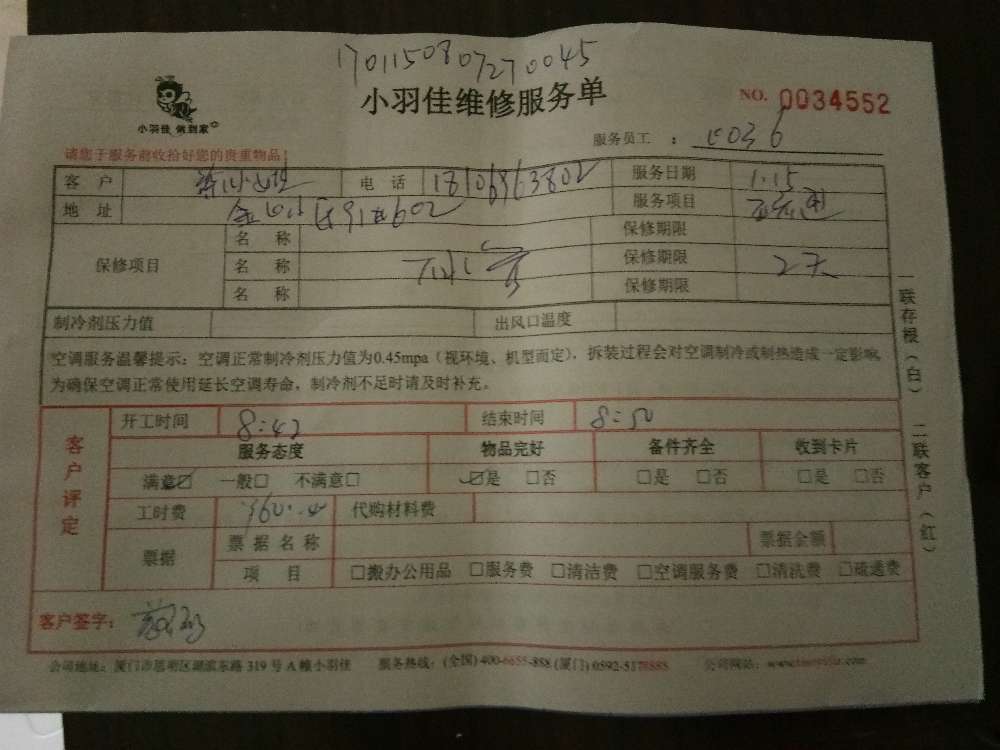 170115080727270045
小羽佳维修服务单
NO. 0034552
小羽佳 做到家
服务员工 : 036
请您于服务前收拾好您的贵重物品！
客 户 电 话 18106963802 服务日期 1.15
地 址 602 服务项目
保修项目 名 称 保修期限
名 称 保修期限 2天
名 称 保修期限
制冷剂压力值 出风口温度
空调服务温馨提示：空调正常制冷剂压力值为0.45mpa（视环境、机型而定），拆装过程会对空调制冷或制热造成一定影响，
为确保空调正常使用延长空调寿命，制冷剂不足时请及时补充。
一联存根（白） 二联客户（红）
客户评定
开工时间 8:42 结束时间 8:50
服务态度 物品完好 备件齐全 收到卡片
满意☑ 一般□ 不满意□ ☑是 □否 □是 □否 □是 □否
工时费 代购材料费
票据 票据名称 票据金额
项 目 □搬办公用品 □服务费 □清洁费 □空调服务费 □清洗费 □疏通费
客户签字：
公司地址：厦门市思明区湖滨东路 319 号 A 幢小羽佳 服务热线：(全国) 400-6655-888 (厦门) 0592-5178885 公司网站：